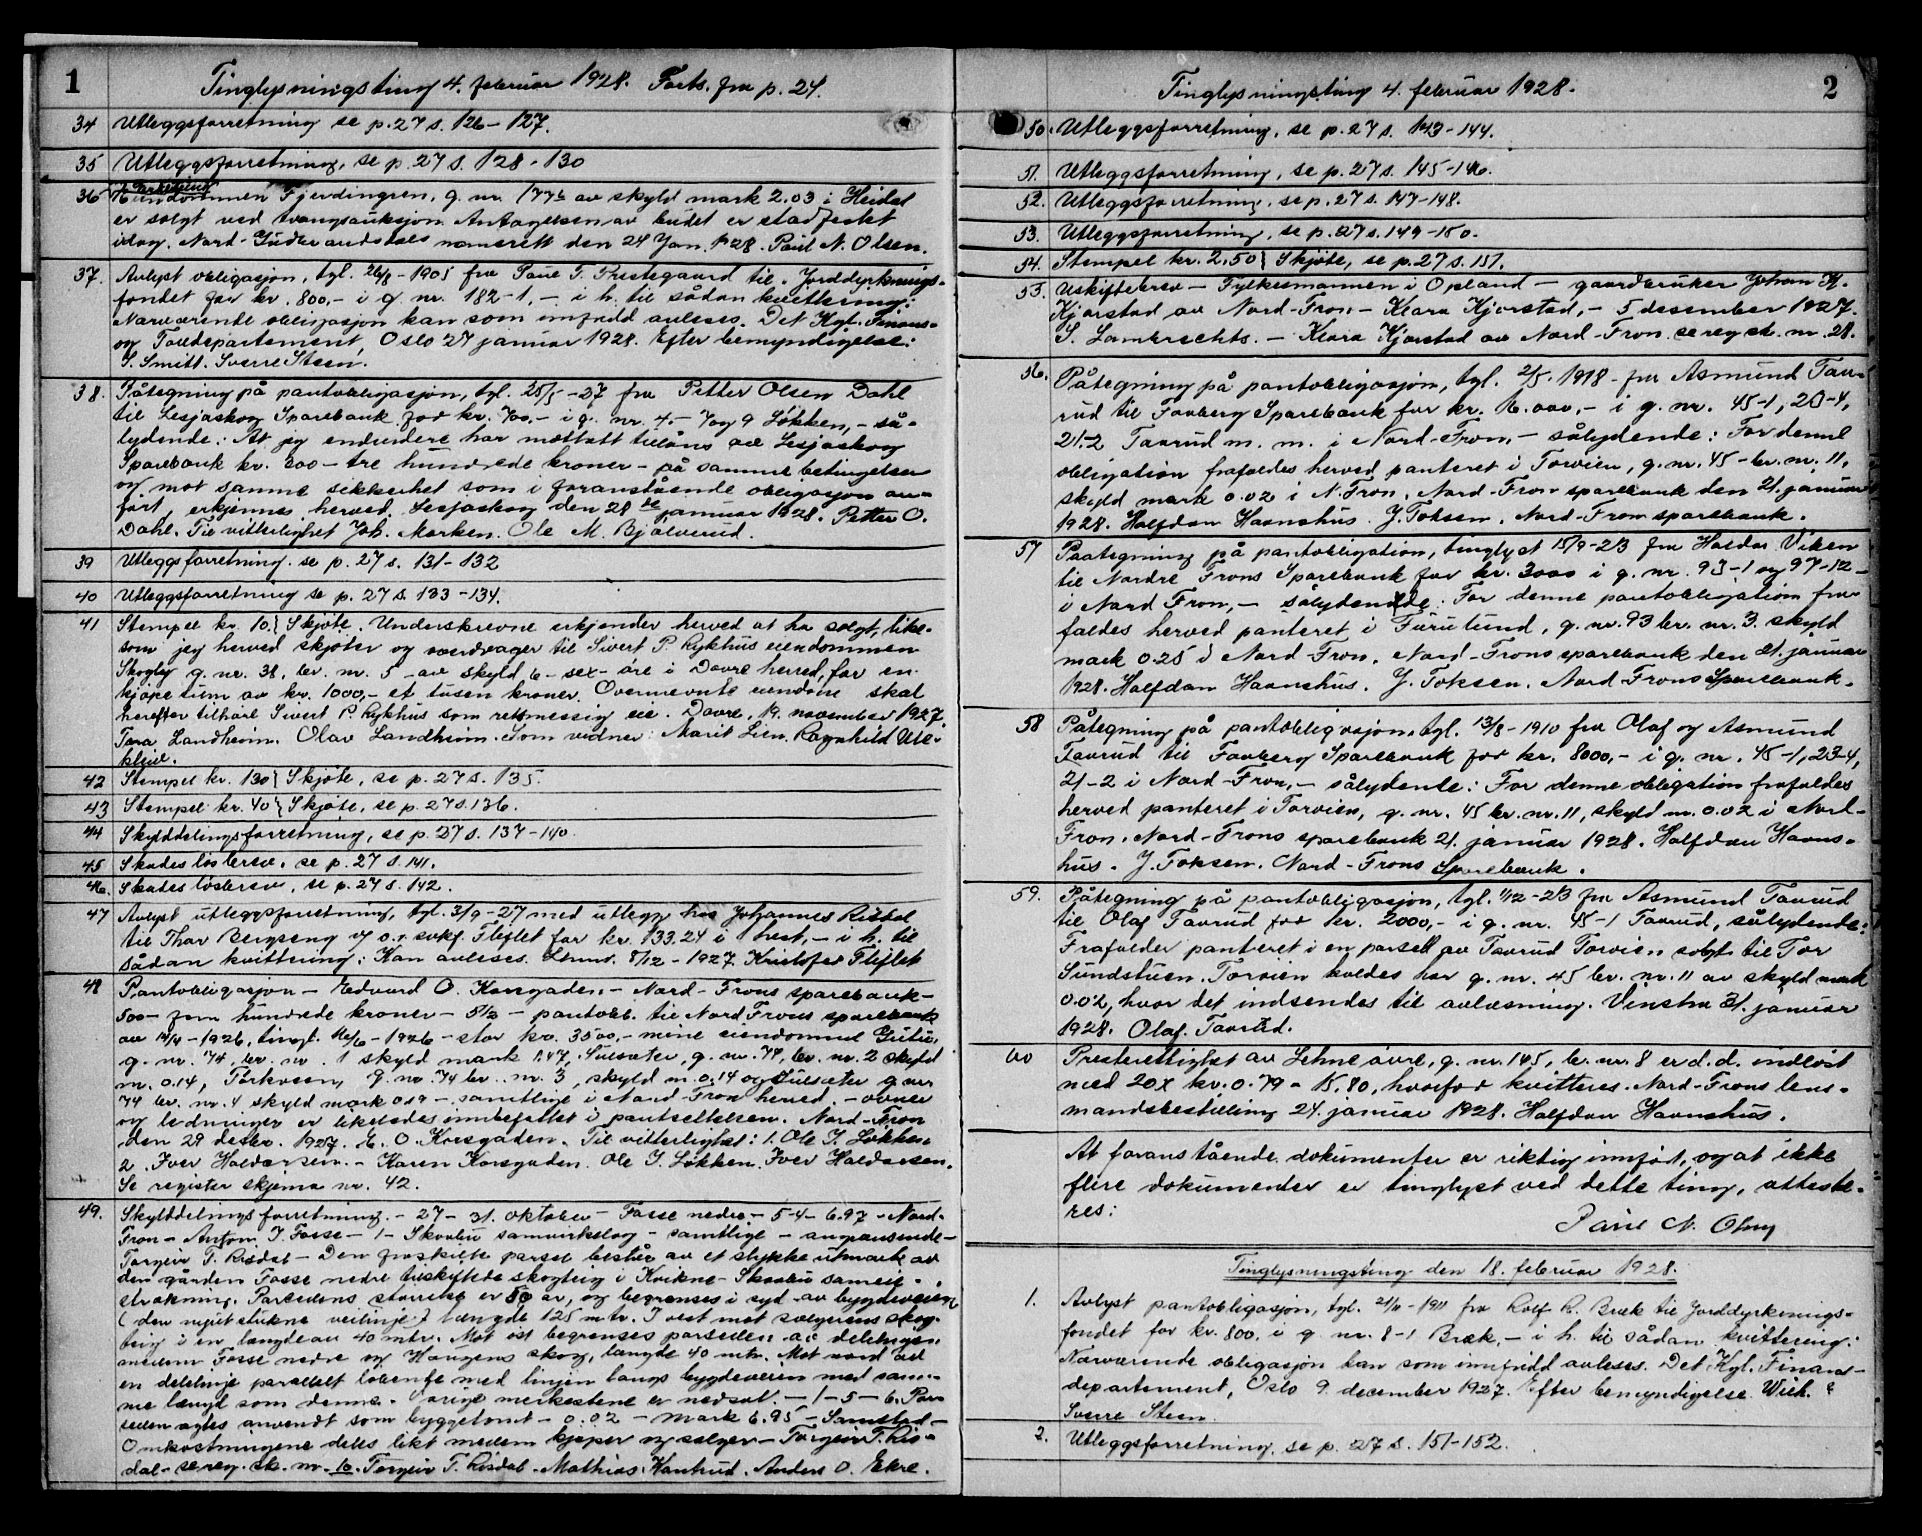 1
Tinglysningsting 4. februar 1928. Forts. fra p. 24.
34 Utleggsforretning se p. 27 s. 126-127.
35 Utleggsforretning, se p. 27 s. 128-130
36 Erklæring
Eiendommen Fjerdingren, g. nr. 177 b av skyld mark 2.03 i Heidal
er solgt ved tvangsauksjon. Antagelsen av budet er stadfestet
idag. Nord-Gudbrandsdals namsrett den 24 Jan. 1928. Paul N. Olsen.
37. Avlyst obligasjon, tgl. 26/8-1905 fra Paul T. Prestegaard til Jorddyrknings-
fondet for kr. 800,- i g. nr. 182-1, - i h. til sådan kvittering:
Nærværende obligasjon kan som innfridd avleses. Det Kgl. Finans-
og Tolldepartement, Oslo 27 januar 1928. Efter bemyndigelse:
S. Smitt. Sverre Steen.
38. Påtegning på pantobligasjon, tgl. 25/5-27 fra Petter Olsen Dahl
til Lesjaskog Sparebank for kr. 700,- i g. nr. 4,- 7 og 9 Løkken, - så-
lydende: At jeg endvidere har mottatt tillåns av Lesjaskog
Sparebank kr. 300 - tre hundrede kroner - på samme betingelser
og mot samme sikkerhet som i foranstående obligasjon an-
ført, erkjennes herved. Lesjaskog den 28de januar 1928. Petter O.
Dahl. Til vitterlighet Joh. Morken. Ole M. Bjølverud.
39 Utleggsforretning. se p. 27 s. 131-132
40 Utleggsforretning se p. 27 s. 133-134.
41 Stempel kr. 10.} Skjøte. Underskrevne erkjender herved at ha solgt, like-
som jeg herved skjøter og overdrager til Sivert P. Rykhus eiendommen
Skogly g. nr. 38, br. nr. 5 av skyld 6 - sex - øre i Dovre herred, for en
kjøpesum av kr. 1000,- et tusen kroner. Ovennevnte eiendom skal
herefter tilhøre Sivert P. Rykhus som rettmessig eie. Dovre, 19. november 1927.
Tora Landheim. Olav Landheim. Som vidner: Marit Lien. Ragnhild Ule-
kleiv.
42 Stempel kr. 130} Skjøte, se p. 27 s. 135.
43 Stempel kr. 40} Skjøte, se p. 27 s. 136.
44 Skylddelingsforretning, se p. 27 s. 137-140.
45 Skadesløsbrev. se p. 27 s. 141.
46. Skadesløsbrev, se p. 27 s. 142.
47 Avlyst utleggsforretning, tgl. 3/9-27 med utlegg hos Johannes Risdal
til Thor Bergseng v/ o.r. sakf. Fliflet for kr. 133.24 i 1 hest, - i h. til
sådan kvittering: Kan avleses. 8/12-1927. Kristofer Fliflet
48 Pantobligasjon - Edvard O. Korsgaden - Nord-Frons sparebank -
500 - fem hundrede kroner - 5½ - pantobl. til Nord Frons sparebank
av 14/4-1926, tingl. 16/6-1926 - stor kr. 3500,- mine eiendomme
g. nr. 74, br. nr. 1 skyld mark 1.47, Sulsæter, g. nr. 74, br. nr. 2 skyld
m. 0.14, g. nr. 74 br. nr. 3, skyld m. 0.14 og Sulsæter g. nr.
74 br. nr. 4 skyld mark 0.29 - samtlige i Nord-Fron herred. - ovner
og ledninger er likeledes innbefattet i pantsettelsen. Nord-Fron
den 29 desbr. 1927. E. O. Korsgaden. Til vitterlighet: 1. Ole I. Løkken.
2. Iver Haldorsen. - Karen Korsgaden. Ole I. Løkken. Iver Haldorsen.
Se register skjema nr. 42.
49. Skylddelingsforretning. - 27-31. oktober - Fosse nedre - 5-4 - 6.97 - Nord-
Fron - Anton J. Fosse - 1 - samvirkelag - samtlige - angaaende -
Torgeir T. Risdal - Den fraskilte parsel består av et stykke utmark av
den gården Fosse nedre tilskiftede skogteig i Kvikne - sameie-
strækning. Parsellens størrelse er 50 ar, og begrenses i syd av bygdeveien
(den nyutstukne veilinje) længde 125 mtr. I vest mot sælgerens skog-
teig i en længde av 40 mtr. Mot øst begrenses parsellen av delelinjen
mellem Fosse nedre og Haugens skog, længde 40 mtr. Mot nord av
en delelinje parallelt løbende med linjen langs bygdeveien med sam-
me længd som denne. merkestene er nedsat. - 1-5-6. Par-
sellen agtes anvendt som byggetomt - 0.02 - mark 6.95 - Samstad -
Omkostningene deles likt mellem kjøper og selger - Torgeir T. Ris-
dal - se reg. sk. nr. 10. Torgeir T. Risdal. Mathias. Anders O. Ekre.
2
Tinglysningsting 4. februar 1928.
50. Utleggsforretning, se p. 27 s. 143-144.
51. Utleggsforretning, se p. 27 s. 145-146.
52. Utleggsforretning, se p. 27 s. 147-148.
53. Utleggsforretning, se p. 27 s. 149-150.
54. Stempel kr. 2.50} Skjøte, se p. 27 s. 151.
55. Uskiftebrev - Fylkesmannen i Opland - gaardbruker Johan H.
Kjorstad av Nord-Fron - Klara Kjorstad, - 5 desember 1927.
S. Lambrechts. - Klara Kjorstad av Nord-Fron. se reg. sk. nr. 28.
56. Påtegning på pantobligasjon, tgl. 2/5. 1918 - fra Asmund Taa-
rud til Faaberg Sparebank for kr. 16.000,- i g. nr. 45-1, 23-4,
21-2 Taarud m. m. i Nord-Fron, - sålydende: For denne
obligation frafaldes herved panteret i Torvien, g. nr. 45 - br. nr. 11,
skyld mark 0.02 i N. Fron. Nord-Fron sparebank den 21. januar
1928. Halfdan Haanshus. J. Toksen. Nord-Fron sparebank.
57 Paategning på pantobligation, tinglyst 15/9-23 fra Haldor Viken
til Nordre Frons Sparebank for kr. 3000 i g. nr. 93-1 og 97-12 -
i Nord Fron, - sålydende: For denne pantobligation fra-
faldes herved panteret i Furulund, g. nr. 93 br. nr. 3. skyld
mark 0.25 i Nord-Fron. Nord-Frons sparebank den 21. januar
1928. Halfdan Haanshus. J. Toksen. Nord-Frons Sparebank.
58 Påtegning på pantobligasjon, tgl. 13/8-1910 fra Olaf og Asmund
Taarud til Faaberg Sparebank for kr. 8000,- i g. nr. 45-1, 23-4,
21-2 i Nord-Fron, - sålydende: For denne obligation frafaldes
herved panteret i Torvien, g. nr. 45 br. nr. 11, skyld m. 0.02 i Nord-
Fron. Nord-Frons sparebank 21. januar 1928. Halfdan Haans-
hus. J. Toksen. Nord-Frons Sparebank.
59. Påtegning på pantobligasjon, tgl. 1/12-23 fra Asmund Taarud
til Olaf Taarud for kr. 2000,- i g. nr. 45-1 Taarud, sålydende:
Frafalder panteret i en parsell av Taarud Torvien solgt til Tor
Sundstuen. Torvien kaldes har g. nr. 45 br. nr. 11 av skyld mark
0.02, hvor det indsendes til avlæsning. Vinstra 21. januar
1928. Olaf. Taarud.
60 Presterettighet av Lehne øvre, g. nr. 145, br. nr. 8 er d. d. indløst
med 20 x kr. 0.79 = 15.80, hvorfor kvitteres. Nord-Frons lens-
mandsbestilling 24. januar 1928. Halfdan Haanshus.
At foranstående dokumenter er riktig innført, og at ikke
flere dokumenter er tinglyst ved dette ting, atteste-
res:
Paul N. Olsen
Tinglysningsting den 18. februar 1928.
1. Avlyst pantobligasjon, tgl. 21/11-1911 fra Rolf R. Bræk til Jorddyrknings-
fondet for kr. 800, i g. nr. 8-1 Bræk, - i h. til sådan kvittering:
Nærværende obligasjon kan som innfridd avleses. Det Kgl. Finans-
departement, Oslo 9. december 1927. Efter bemyndigelse Wilh.
Sverre Steen.
2. Utleggsforretning, se p. 27 s. 151-152.